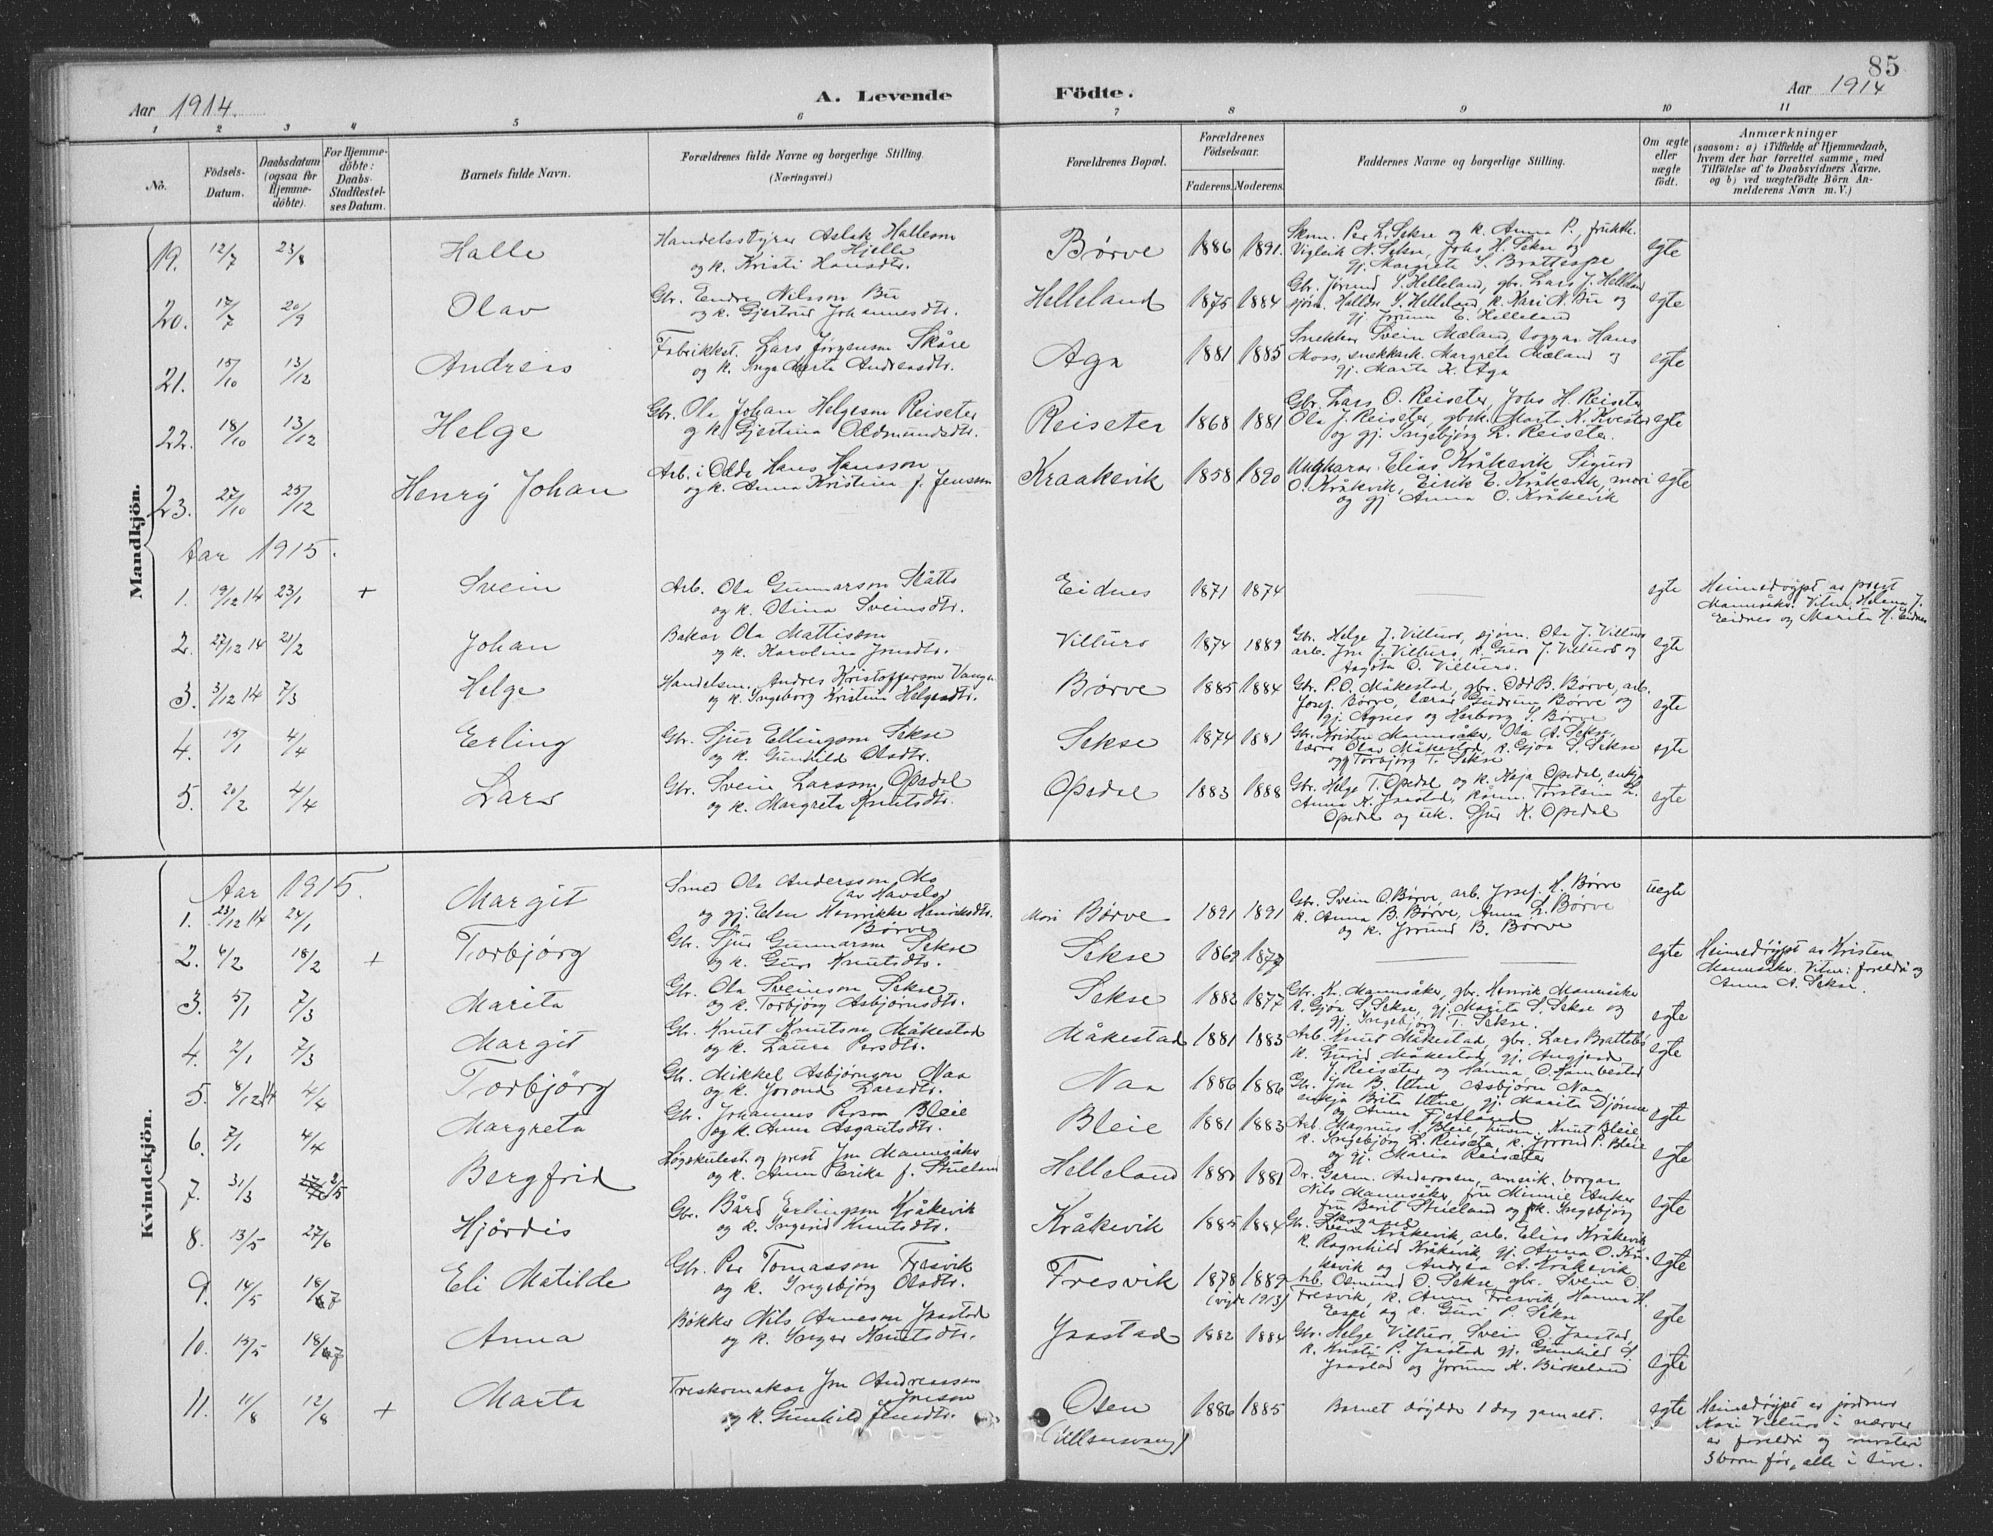 85
Aar 1914. A. Levende Födte. Aar 1914
1 2 3 4 5 6 7 8 9 10 11
No. Födsels-Datum. Daabsdatum (ogsaa for Hjemme-döbte). For Hjemme-döbte: Daabs-Stadfæstel-ses Datum. Barnets fulde Navn. Forældrenes fulde Navne og borgerlige Stilling. (Næringsvei.) Forældrenes Bopæl. Forældrenes Födselsaar. Faderens. Moderens. Faddernes Navne og borgerlige Stilling. Om ægte eller uægte födt. Anmærkninger (saasom: a) i Tilfælde af Hjemmedaab, hvem der har forrettet samme, med Tilföielse af to Daabsvidners Navne, og b) ved uægtefödte Börn Anmelderens Navn m. V.)
Mandkjön.
19. 12/7 23/8 Halle Handelsstyrar Aslak Halleson Hjelle og k. Kristi Hansdtr. Børve 1886 1891. Per L. Sekse og k. Anna P., Vigleik N. Sekse, Johs H. Sekse og gj. Margrete S. egte
20. 17/7 20/9 Olav Gbr. Eendre Nilsson Bu og k. Gjertrud Johannesdtr. Helleland 1875 1884 Gbr. Jørund S. Helleland, gbr. Lars J. Helleland sjøm. Halldr S. Helleland, k. Kari N. Bu og gj. Jorunn E. Helleland egte
21. 15/10 13/12 Andreis Fabrikkst. Lars Jørgenson Skåre og k. Inga Marta Andreasdtr. Aga 1881 1885 Snekkar Svein Mæland, Hans Moss, snekkark. Margreta Mæland og gj. Marta K. Aga egte
22. 18/10 13/12 Helge Gbr. Ola Johan Helgeson Reiseter og k. Gjertina Oddmundsdtr. Reiseter 1868 1881 Gbr. Lars O. Reiseter, Johs H. Reiseter Ola J. Reiseter, gbrk. Marta K. og gj. Ingebjørg L. Reiseter. egte
23. 27/10 25/12 Henry Johan Arb. i Odda Hans Hansson og k. Anna Kristina J. Jensen Kraakevik 1858 1890 Ungkarar Elias Kråkevik Sigurd O. Kråkvik, Eirik E. Kråkevik, og gj. Anna O. Kråkevik egte
Aar 1915.
1. 19/12 14 23/1 + Svein Arb. Ola Gunnarson Slåtto og k. Olina Sveinsdtr. Eidnes 1871 1874 egte Heimedøypt av prest Mannsåker. Vitne: Helena J. Eidnes og Marita H. Eidnes
2. 27/12 14 21/2 Johan Bakar Ola Mattison og k. Karolina Jonsdtr. Villure 1874 1889 Gbr. Helge J. Villure, sjøm. Ola J. Villure arb. Jon J. Villure, k. Guro J. Villure og Aagota O. Villure. egte
3. 3/12 14 7/3 Helge Handelsm. Andres Kristofferson Vangen og k. Ingeborg Kristine Helgesdtr. Børve 1885 1884 Gbr. P. O. Måkestad, gbr. Odd B. Børve, arb. Josef Børve, Gudrun Børve og gj. Agnes og Herborg S. Børve egte
4. 15/1 4/4 Erling Gbr. Sjur Ellingson Sekse og k. Gunhild Olsdtr. Sekse 1874 1881 Gbr. Kristen Mannsåker, Ola A. Sekse, Olav Måkestad, k. Gjøa S. Sekse og Torbjørg T. Sekse egte
5. 20/2 4/4 Lars Gbr. Svein Larsson Opedal og k. Margreta Knutsdtr. Opedal 1883 1888 Gbr. Helge T. Opedal og k. Kaja Opedal, enkja Anna K. Jaastad, Torstein L. Opedal og Sjur K. Opedal egte
Kvindekjön.
Aar 1915.
1. 23/12 14 24/1 Margit Smed Ola Andersson Mo av Havslod og gj. Elen Henrikke Henriksdtr. Børve Mori Børve 1891 1891 Gbr. Svein O. Børve, arb. Josef H. Børve k. Anna B. Børve, Anna L. Børve og k. Jorund B. Børve uegte
2. 6/2 18/2 + Torbjørg Gbr. Sjur Gunnarson Sekse og k. Guro Knutsdtr. Sekse 1869 1877 egte Heimedøypt av Kristen Mannsåker. Vitne: foreldri og Anna A. Sekse.
3. 5/1 7/3 Marita Gbr. Ola Sveinson Sekse og k. Torbjørg Asbjørnsdtr. Sekse 1882 1877 Gbr. Kr. Mannsåker, gbr. Henrik Mannsåker k. Gjøa S. Sekse, gj. Marita S. Sekse og gj. Ingebjørg T. Sekse. egte
4. 2/1 7/3 Margit Gbr. Knut Knutson Måkestad og k. Laura Persdtr. Måkestad 1881 1883 Arb. Knut Måkestad, gbr. Lars k. Gurid Måkestad, gj. J. Reiseter og Hanna O. Hambestad egte
5. 8/12 14 4/4 Torbjörg Gbr. Mikkel Asbjörnson Naa og k. Jorond Larsdtr. Naa 1886 1886 Gbr. Jon B. Utne, Asbjörn Naa enkja Brita Utne, gj. Marita Djönne og Anna egte
6. 7/1 4/4 Margreta Gbr. Johannes Person Bleie og k. Anna Asgautsdtr. Bleie 1881 1883 Arb. Magnus J. Bleie, Knut Bleie k. Ingebjørg L. Reiseter, k. Jorond P. Bleie og gj. Maria Reiseter egte
7. 31/3 2/5 Bergfrid Høgskulest. og prest Jon Mannsåker og k. Anna Erika f. Stueland Helleland 1880 1881 Dr. Garm. Andersen, amerik. borgar Nils Mannsåker, fru Minnie Anker fru Berit Stueland og pk. Ingebjørg egte
8. 13/5 27/6 Hjördis Gbr. Bård Erlingson Kråkevik og k. Ingerid Knutsdtr. Kråkevik 1885 1884 Kråkevik, arb. Elias Kråkevik k. Ragnhild Kråkevik, gj. Anna O. Kråkevik og Andrea A. Kråkevik egte
9. 14/5 18/7 Eli Matilde Gbr. Per Tomasson Fresvik og k. Ingebjørg Olsdtr. Fresvik 1878 1889 (vigde 1913) Arb. Osmund O. Sekse, gbr. Svein O. Fresvik, k. Anna Fresvik, Hanna H. Espe og k. Guri P. Sekse egte
10. 15/5 18/7 Anna Bökkar Nils Arneson Jaastad og k. Knutsdtr. Jaastad 1882 1884 Gbr. Helge Villure, Svein O. Jaastad, k. Kristi P. Jaastad gj. Gunhild S. Jaastad og Jorunn K. Birkeland egte
11. 11/8 12/8 + Marta Treskomakar Jon Andreasson Jonson og k. Gunhild Jensdtr. Osen (Ullensvang) 1886 1885 Barnet døydde 1 dag gamalt. egte Heimedøypt av jordmor Kari Villure i nærver av foreldri og 3 born før, alle i live.